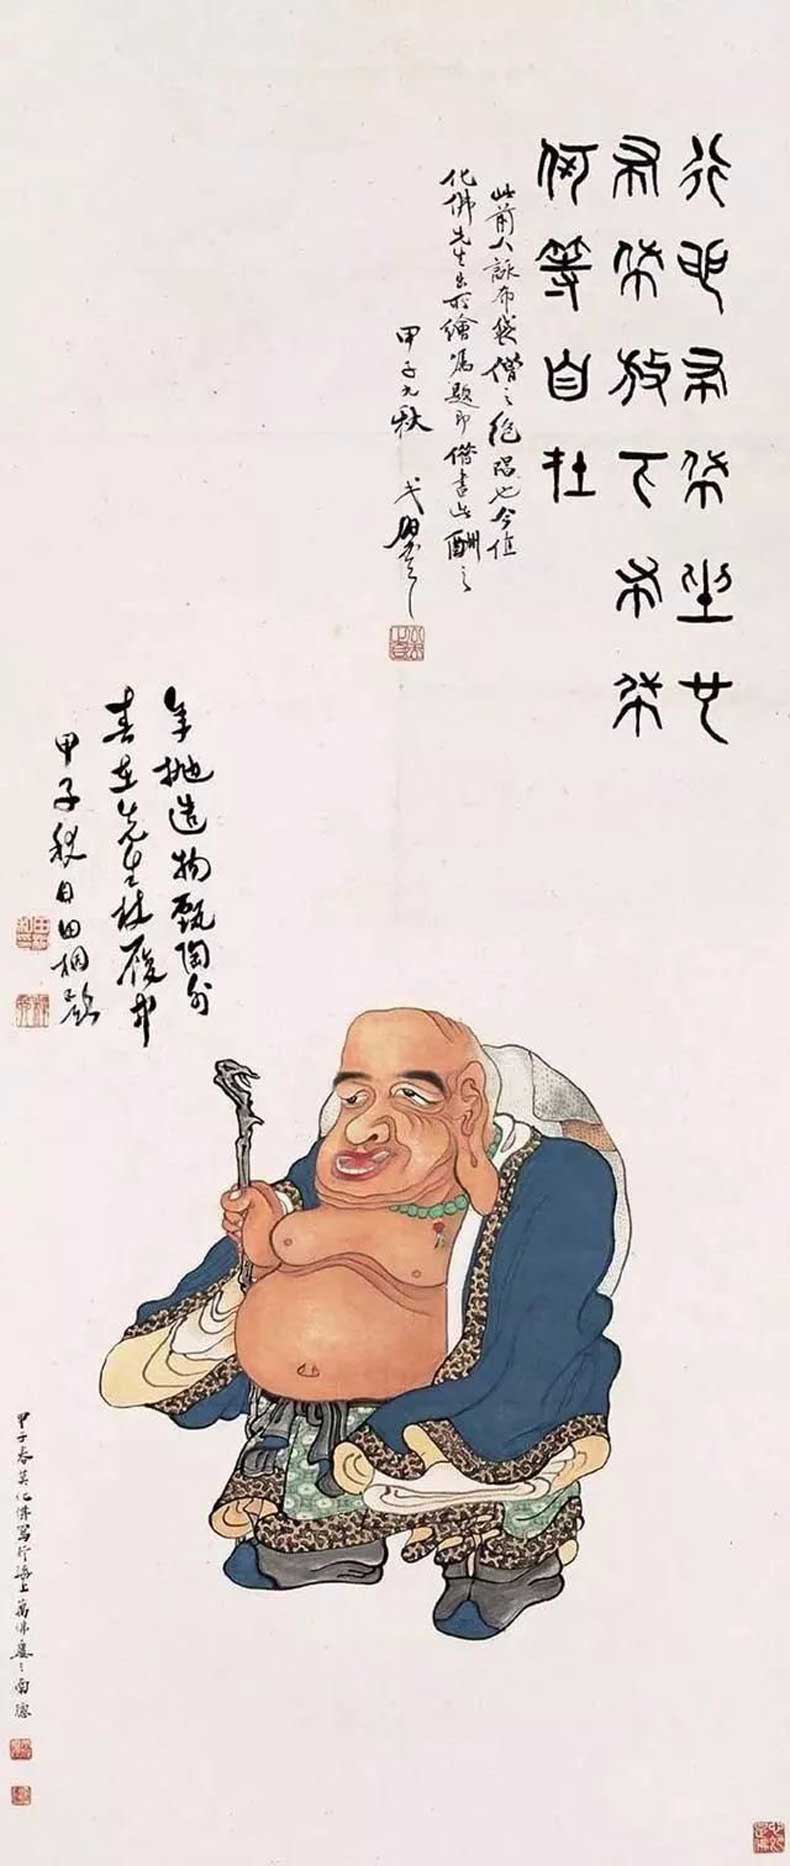 行也布袋坐也
布袋放下布袋
何等自在
此前人詠布袋僧之絕唱也今值
化佛先生出所繪屬題即借書此酬之
甲子九秋
年拋造物甄陶外
春在先生杖履中
甲子秋日田桐題
甲子春莫化佛寫於海上萬佛樓之南窓